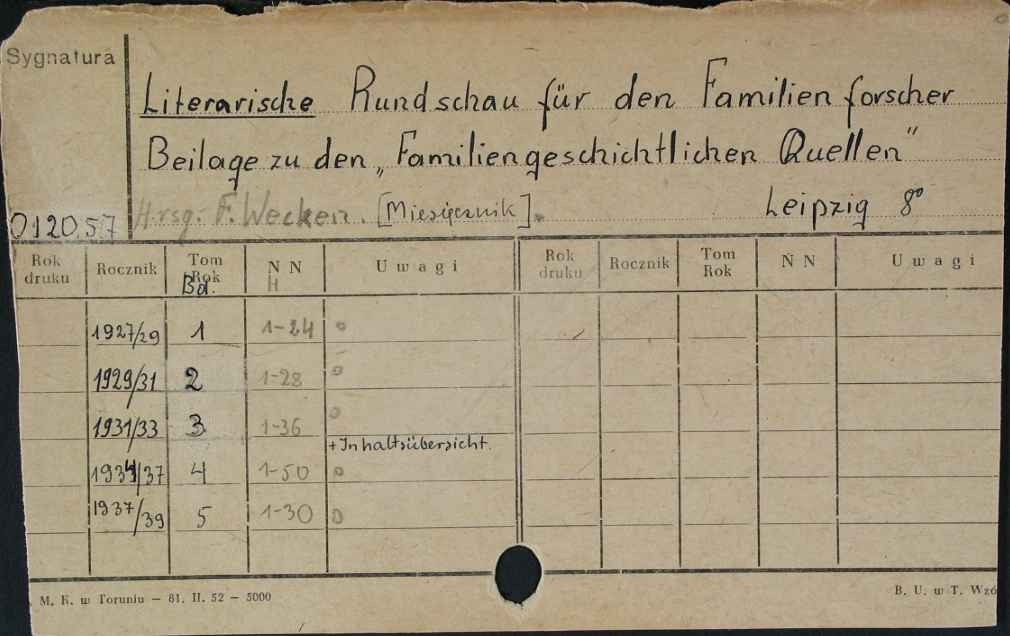 Sygnatura
Literarische Rundschau für den Familienforscher
Beilage zu den „Familiengeschichtlichen Quellen"
Hrsg. F. Wecken. [Miesięcznik]. Leipzig 8°
012057
Rok druku Rocznik Tom Rok Bd. N N H Uwagi Rok druku Rocznik Tom Rok N N Uwagi
1927/29 1 1-24 o
1929/31 2 1-28 o
1931/33 3 1-36 o
+Inhaltsübersicht.
1934/37 4 1-50 o
1937/39 5 1-30 o
M. K. w Toruniu — 81. II. 52 — 5000 B. U. w T. Wzó